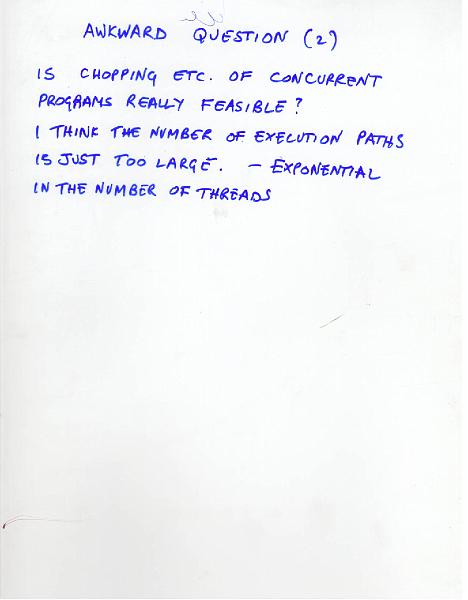 AWKWARD QUESTION (2)
IS CHOPPING ETC. OF CONCURRENT
PROGRAMS REALLY FEASIBLE?
I THINK THE NUMBER OF EXECUTION PATHS
IS JUST TOO LARGE. — EXPONENTIAL
IN THE NUMBER OF THREADS